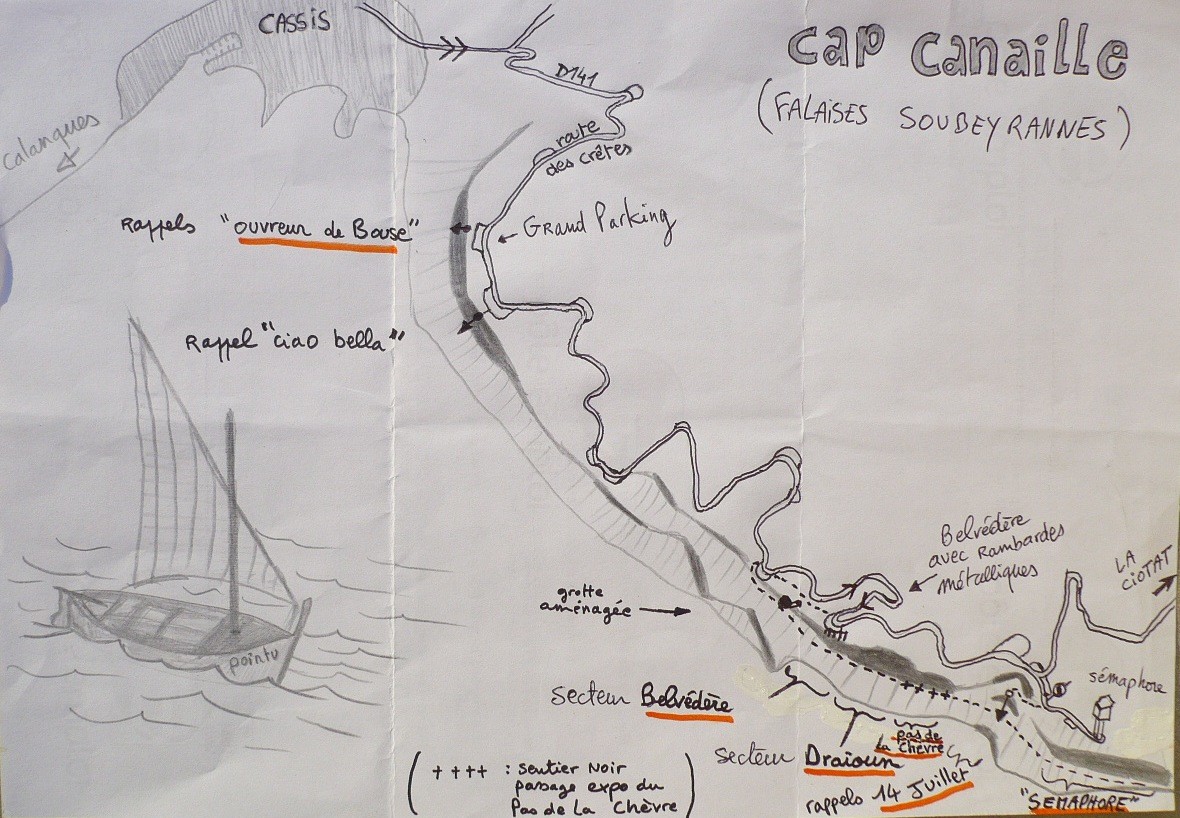 CASSIS
cap canaille
(FALAISES SOUBEYRANNES)
D141
Calanques
route
des crêtes
Rappels "ouvreur de Bouse"
Grand Parking
Rappel "ciao bella"
Belvédère
avec Rambardes
métalliques
LA
CIOTAT
grotte
aménagée
pointu
sémaphore
secteur Belvédère
pas de
la Chèvre
secteur Draioun
rappels 14 Juillet
"SEMAPHORE"
(++++ : sentier Noir
passage expo du
Pas de La Chèvre)